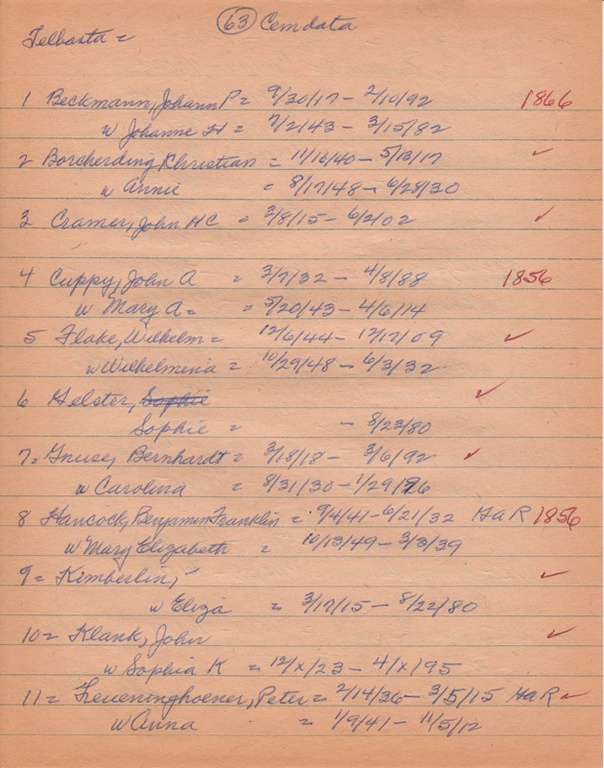 63 Cemdata
Telbasta =
1 Beckmann, Johann P = 9/30/17 - 2/10/92 1866
w Johanne H = 7/2/43 - 3/15/82
2 Borcherding Khristian = 11/16/40 - 5/13/17 ✓
w Annie = 8/17/48 - 6/28/30
3 Cramer, John HC = 3/8/15 - 6/2/02 ✓
4 Cuppy, John A = 3/7/32 - 4/8/88 1856
w Mary A = = 5/20/43 - 4/6/14
5 Flake, Wilhelm = 12/6/44 - 12/17/09 ✓
w Wilhelmina = 10/29/48 - 6/3/32
6 Gelster, Sophie ✓
Sophie = - 8/23/80
7 = Bernhardt = 3/18/18 - 3/6/92 ✓
w Carolina = 8/31/30 - 1/29/96
8 Hancock, Benjamin Franklin = 9/4/41 - 6/21/32 HaR 1856
w Mary Elizabeth = 10/13/49 - 3/3/39
9 = Kimberlin, ✓
w Eliza = 3/17/15 - 8/22/80
10 = Klank, John ✓
w Sophia K = 12/x/23 - 4/x/95
11 = Peter = 2/14/36 - 3/5/15 HaR ✓
w Anna = 1/9/41 - 11/5/12